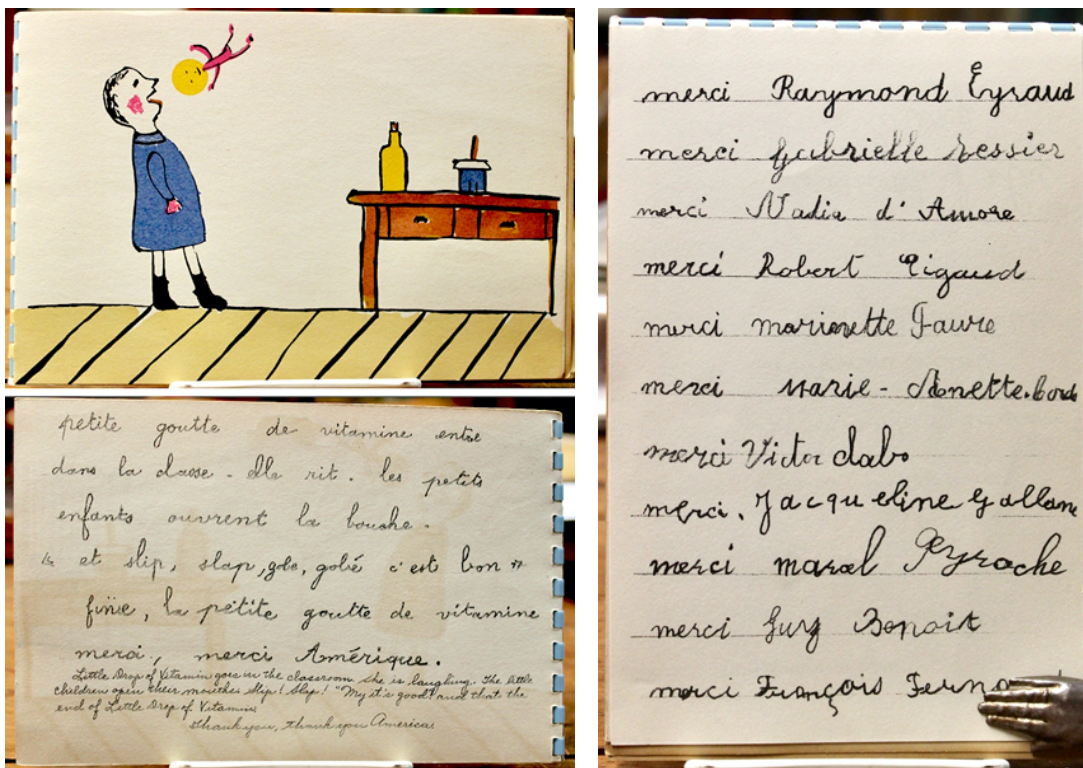 petite goutte de vitamine entre
dans la classe - elle rit. les petits
enfants ouvrent la bouche.
" et slip, slap, gobe, gobé c'est bon "
finie, la petite goutte de vitamine
merci, merci Amérique.
Little Drop of Vitamin goes in the classroom she is laughing. The little
children open their mouthes slip! slap! "My it's good" and that the
end of Little Drop of Vitamin
Thank you, thank you America
merci Raymond Eyraud
merci Gabrielle Tessier
merci Nadia d'Amore
merci Robert Rigaud
merci marinette Faure
merci Marie-Annette.bord
merci Victor dabo
merci. Jacqueline Gallan
merci marcel Peyrache
merci Guy Benoit
merci François